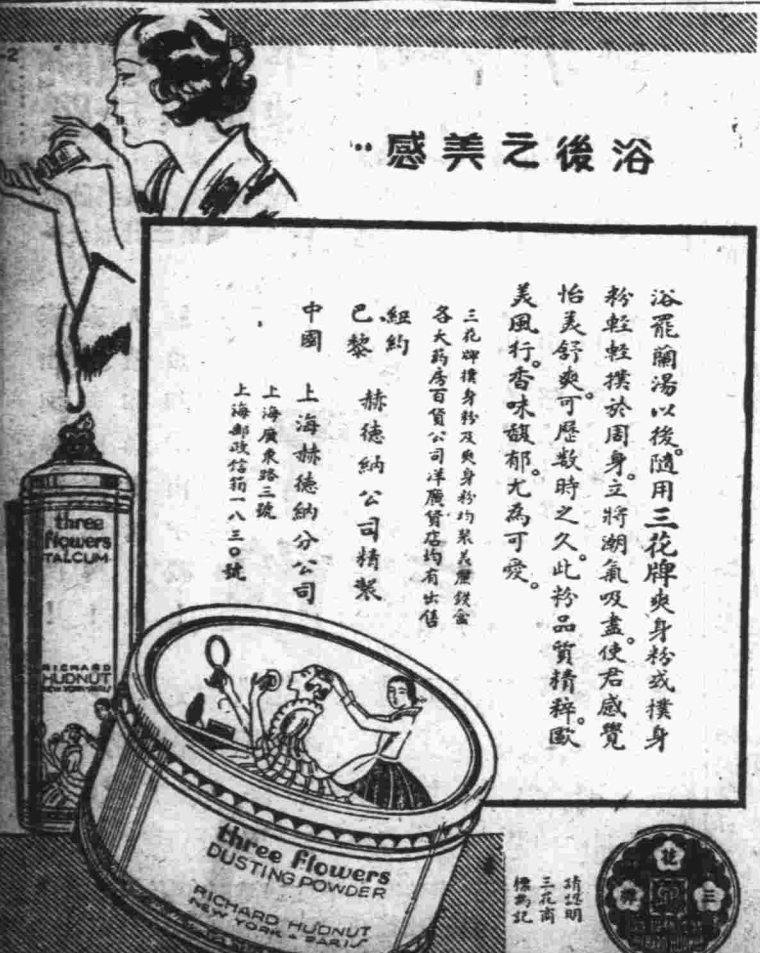 浴後之美感
浴罷蘭湯以後。隨用三花牌爽身粉或撲身
粉輕輕撲於周身。立將潮氣吸盡。使君感覺
怡美舒爽。可歷數時之久。此粉品質精粹。歐
美風行。香味馥郁。尤為可愛。
三花牌撲身粉及爽身粉均裝美麗鉄盒
各大葯房百貨公司洋廣貨店均有出售
紐約
巴黎
赫德納公司精製
中國
上海赫德納分公司
上海廣東路三號
上海郵政信箱一八三〇號
three
flowers
TALCUM
RICHARD
HUDNUT
NEW YORK PARIS
three flowers
DUSTING POWDER
RICHARD HUDNUT
NEW YORK & PARIS
請認明
三花商
標為記
三
花
牌
2